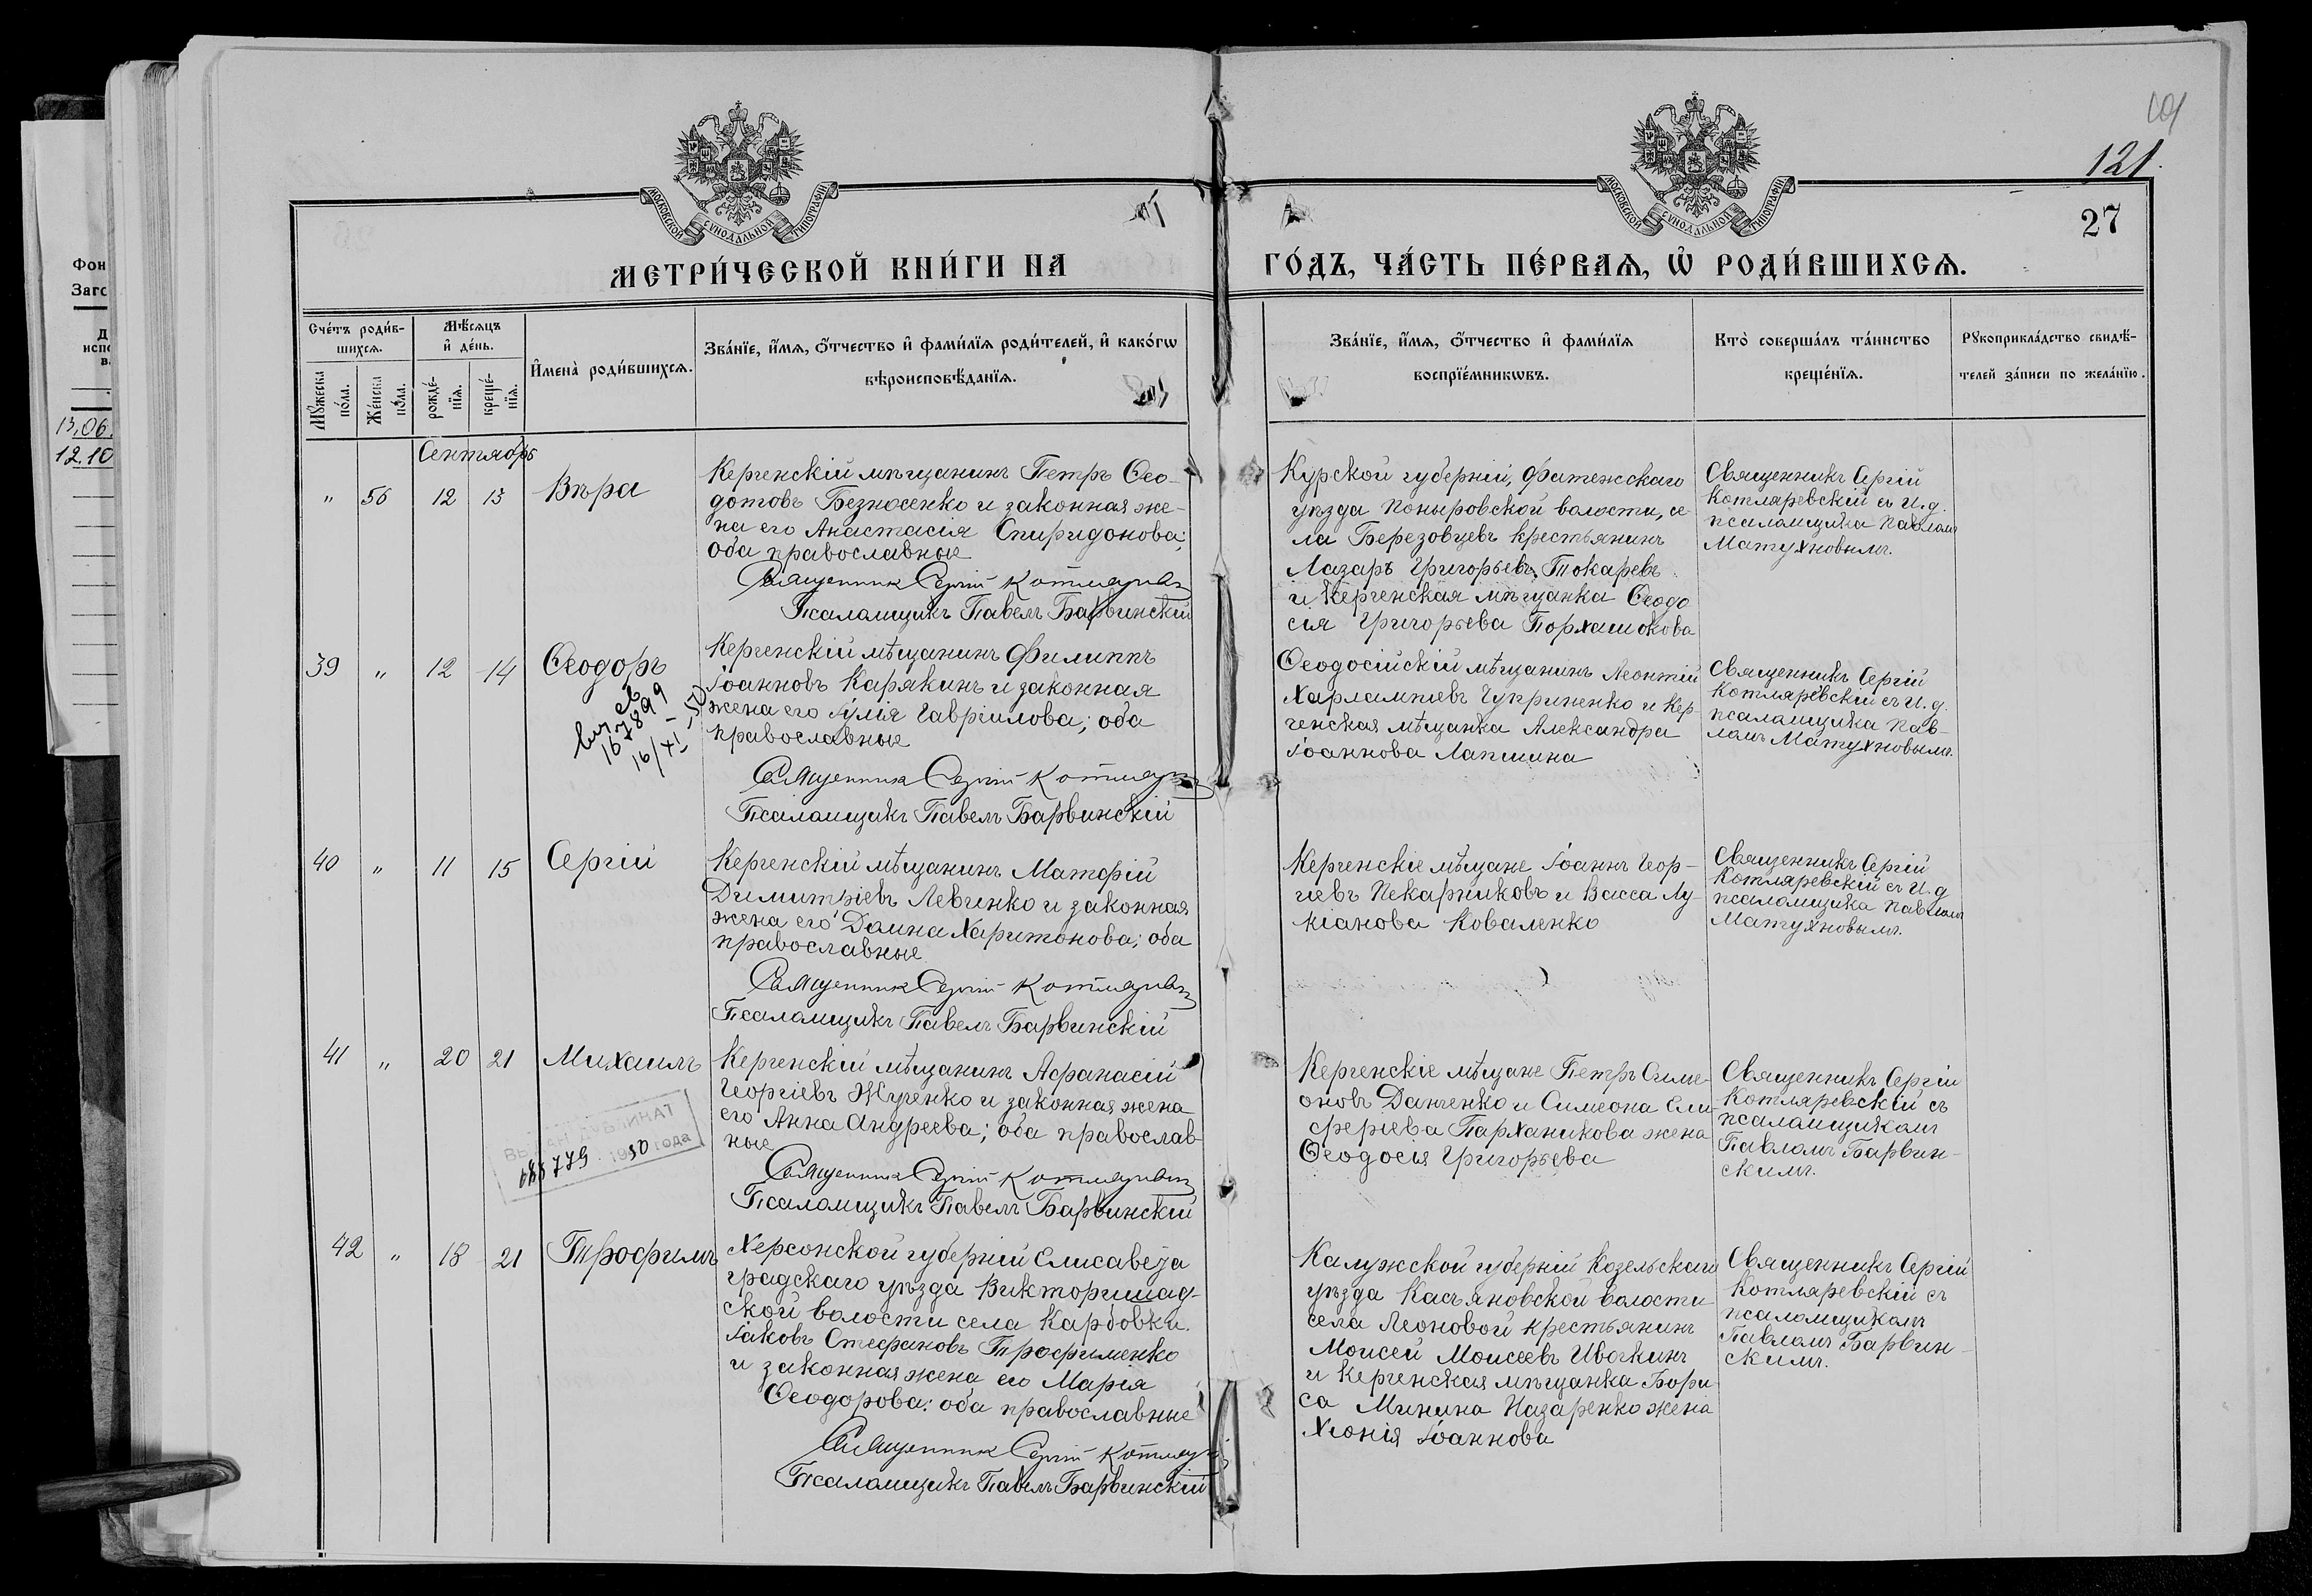 121.
27
МОСКОВСКОЙ СѴНОДАЛЬНОЙ ТИПОГРАФІИ
МОСКОВСКОЙ СѴНОДАЛЬНОЙ ТИПОГРАФІИ
МЕТРИ́ЧЕСКОЙ КНИ́ГИ НА ГО́ДЪ, ЧА́СТЬ ПЕ́РВАѦ, Ѽ РОДИ́ВШИХСѦ.
Сче́тъ роди́в-
шихсѧ.
Мꙋ́жеска
по́ла.
Же́нска
по́ла.
Мѣ́сѧцъ
и҆ де́нь.
рожде́-
нїѧ.
креще́-
нїѧ.
И҆мена̀ роди́вшихсѧ.
Зва́нїе, и҆́мѧ, ѻ҆́тчество и҆ фами́лїѧ роди́телей, и҆ како́гѡ
вѣроисповѣ́данїѧ.
Зва́нїе, и҆́мѧ, ѻ҆́тчество и҆ фами́лїѧ
воспрїе́мникѡвъ.
Кто̀ соверша́лъ та́инство
креще́нїѧ.
Рꙋкоприкла́дство свидѣ́-
телей за́писи по жела́нїю.
Фон
Заго
Д
исп
в
13.06.
12.10
Сентябрь
" 56 12 13 Вѣра
Керченскій мѣщанинъ Петръ Ѳео-
дотовъ Безносенко и законная же-
на его Анастасія Спиридонова;
оба православные
Священникъ Сергій Котляревскій
Псаломщикъ Павелъ Барвинскій
Курской губерніи, Фатежскаго
уѣзда Поныровской волости, се
ла Березовцевъ крестьянинъ
Лазарь Григорьевъ Токаревъ
и Керченская мѣщанка Ѳеодо
сія Григорьева
Священникъ Сергій
Котляревскій съ И.д.
псаломщика Павломъ
Матухновымъ.
39 " 12 14 Ѳеодоръ
167899
16/XI-50
Керченскій мѣщанинъ Филиппъ
Іоанновъ Карякинъ и законная
жена его Іулія Гавріилова; оба
православные
Священникъ Сергій Котляревскій
Псаломщикъ Павелъ Барвинскій
Ѳеодосійскій мѣщанинъ Леонтій
Харлампіевъ Чуприненко и Кер-
ченская мѣщанка Александра
Іоаннова Лапшина
Священникъ Сергій
Котляревскій съ И.д.
псаломщика Пав-
ломъ Матухновымъ.
40 " 11 15 Сергій
Керченскій мѣщанинъ Матфій
Димитріевъ Левченко и законная
жена его Домна Харитонова; оба
православные
Священникъ Сергій Котляревскій
Псаломщикъ Павелъ Барвинскій
Керченскіе мѣщане Іоаннъ Геор-
гіевъ Пекарниковъ и Васса Лу-
кіанова Коваленко
Священникъ Сергій
Котляревскій съ И.д
псаломщика Павломъ
Матухновымъ.
41 " 20 21 Михаилъ
ВЫДАН ДУБЛИКАТ
1950 года
Керченскій мѣщанинъ Аѳанасій
Георгіевъ Жученко и законная жена
его Анна Андреева; оба православ-
ные
Священникъ Сергій Котляревскій
Псаломщикъ Павелъ Барвинскій
Керченскіе мѣщане Петръ Симе-
оновъ Данченко и Симеона Ели-
феріева Парханикова жена
Ѳеодосія Григорьева
Священникъ Сергій
Котляревскій съ
псаломщикомъ
Павломъ Барвин-
скимъ.
42 " 18 21 Трофимъ
Херсонской губерніи Елисавета
градскаго уѣзда Викторштад-
ской волости села Карбовки
Іаковъ Стефановъ Трофименко
и законная жена его Марія
Ѳеодорова; оба православные
Священникъ Сергій Котляревскій
Псаломщикъ Павелъ Барвинскій
Калужской губерніи Козельскаго
уѣзда Касьяновской волости
села Леоновой крестьянинъ
Моисей Моисеевъ Ивочкинъ
и Керченская мѣщанка Бори
са Минина Назаренко жена
Хіонія Іоаннова
Священникъ Сергій
Котляревскій съ
псаломщикомъ
Павломъ Барвин-
скимъ.